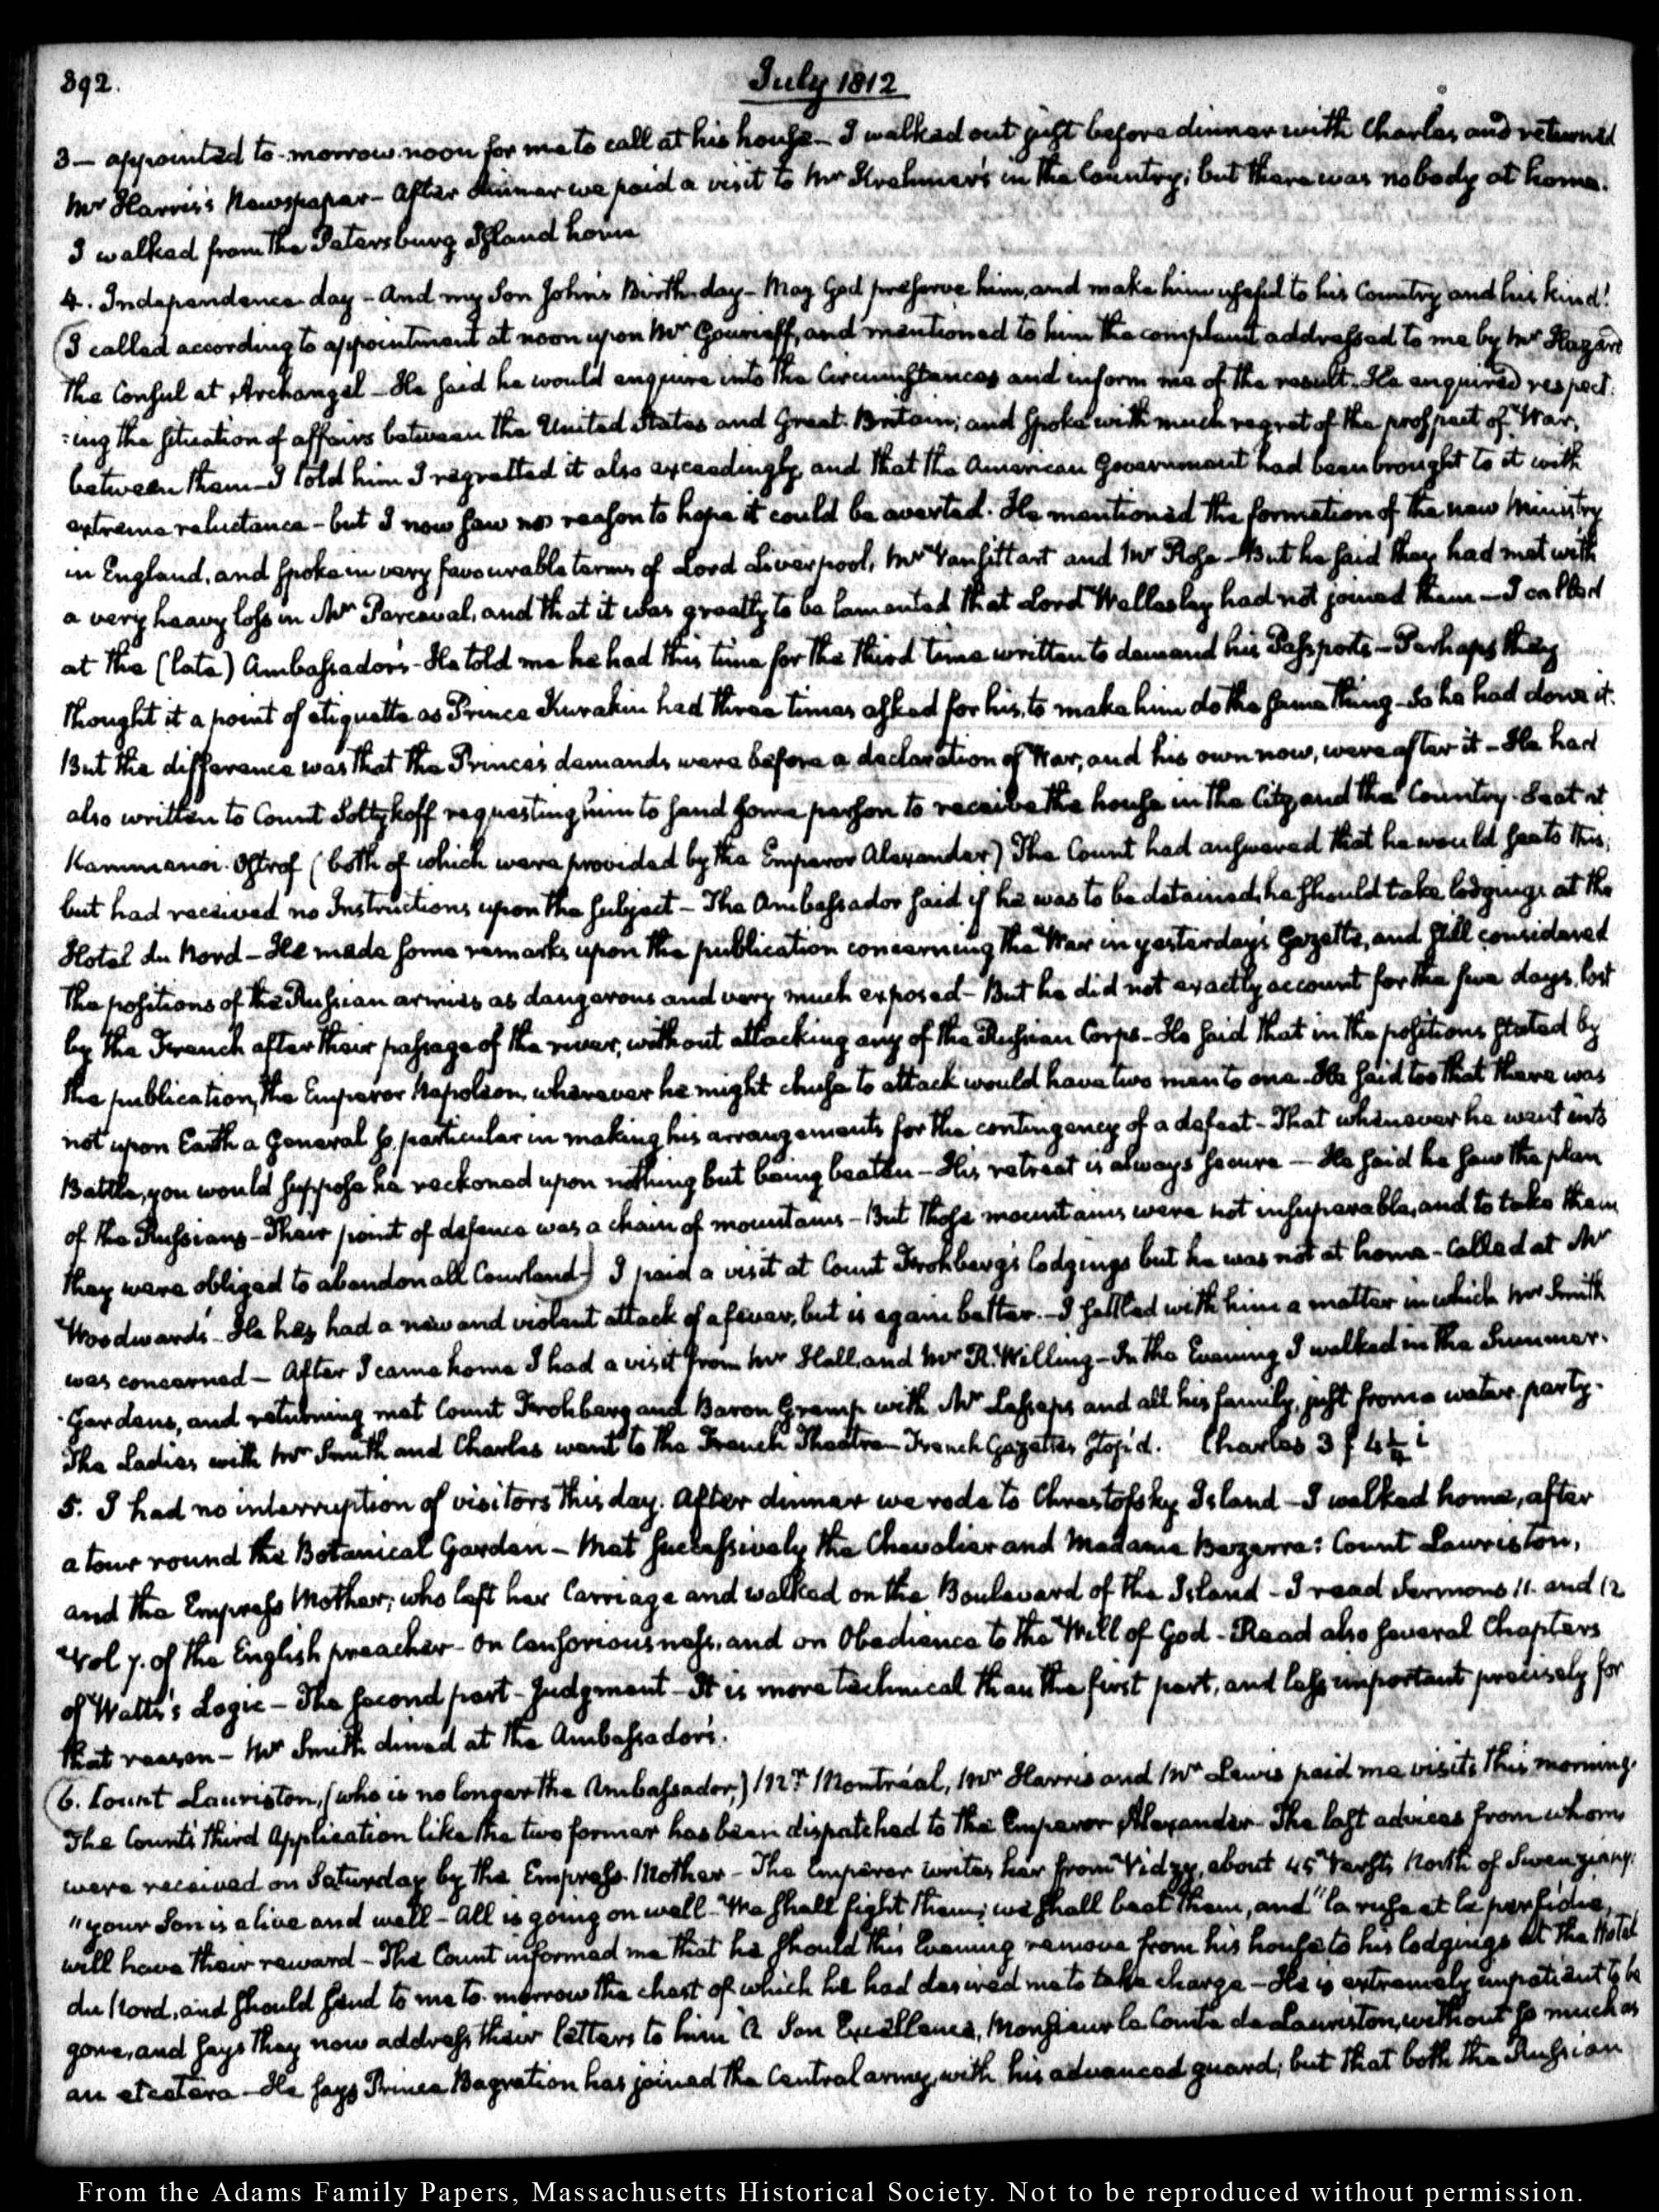 392.
July 1812
3 — appointed to-morrow noon for me to call at his house — I walked out just before dinner with Charles and returned
Mr Harris's Newspaper — After dinner we paid a visit to Mr Krehmer's in the Country; but there was nobody at home.
I walked from the Petersburg Island home
4. Independence day — And my Son John's Birth-day — May God preserve him, and make him useful to his Country and his kind!
I called according to appointment at noon upon Mr Gourieff, and mentioned to him the complaint addressed to me by Mr Hazard
the Consul at Archangel — He said he would enquire into the Circumstances and inform me of the result. He enquired respect:
:ing the situation of affairs between the United States and Great-Britain; and spoke with much regret of the prospect of War,
between them — I told him I regretted it also exceedingly, and that the American Government had been brought to it with
extreme reluctance — but I now saw no reason to hope it could be averted. He mentioned the formation of the new Ministry
in England, and spoke in very favourable terms of Lord Liverpool, Mr Vansittart and Mr Rose — But he said they had met with
a very heavy loss in Mr Perceval, and that it was greatly to be lamented that Lord Wellesley had not joined them — I called
at the (late) Ambassador's — He told me he had this time for the third time written to demand his Passports — Perhaps they
thought it a point of etiquette as Prince Kurakin had three times asked for his, to make him do the same thing — So he had done it.
But the difference was that the Prince's demands were before a declaration of War, and his own now, were after it — He had
also written to Count Soltykoff requesting him to send some person to receive the house in the City, and the Country-Seat at
Kammenoi-Ostrof (both of which were provided by the Emperor Alexander) The Count had answered that he would see to this,
but had received no Instructions upon the subject — The Ambassador said if he was to be detained, he should take lodgings at the
Hotel du Nord — He made some remarks upon the publication concerning the War in yesterday's Gazette, and still considered
the positions of the Russian armies as dangerous and very much exposed — But he did not exactly account for the five days, lost
by the French after their passage of the river, without attacking any of the Russian Corps — He said that in the positions stated by
the publication, the Emperor Napoleon, wherever he might chuse to attack would have two men to one. He said too that there was
not upon Earth a General so particular in making his arrangements for the contingency of a defeat — That whenever he went into
Battle, you would suppose he reckoned upon nothing but being beaten — His retreat is always secure — He said he saw the plan
of the Russians — Their point of defence was a chain of mountains — But those mountains were not insuperable, and to take them
they were obliged to abandon all Courland —) I paid a visit at Count Frohberg's lodgings but he was not at home — Called at Mr
Woodward's — He has had a new and violent attack of a fever, but is again better. — I settled with him a matter in which Mr Smith
was concerned — After I came home I had a visit from Mr Hall, and Mr R. Willing — In the Evening I walked in the Summer-
-Gardens, and returning met Count Frohberg and Baron Gremp with Mr Lesseps and all his family, just from a water-party.
The Ladies with Mr Smith and Charles went to the French Theatre — French Gazettes stop'd. Charles 3 f 4½ i
5. I had no interruption of visitors this day. After dinner we rode to Chrestofsky Island — I walked home, after
a tour round the Botanical Garden — Met successively the Chevalier and Madame Bezerra: Count Lauriston,
and the Empress Mother; who left her Carriage and walked on the Boulevard of the Island — I read Sermons 11. and 12
Vol 7. of the English preacher — On Censoriousness, and on Obedience to the Will of God — Read also several Chapters
of Watts's Logic — The second part — Judgment — It is more technical than the first part, and less important precisely for
that reason — Mr Smith dined at the Ambassador's.
6. Count Lauriston, (who is no longer the Ambassador,) Mr Montréal, Mr Harris and Mr Lewis paid me visits this morning.
The Count's third Application like the two former has been dispatched to the Emperor Alexander — The last advices from whom
were received on Saturday by the Empress-Mother — The Emperor writes her from Vidzy, about 45 Versts North of Swenziany:
"your Son is alive and well — All is going on well — We shall fight them; we shall beat them, and "la ruse et la perfidie,
will have their reward — The Count informed me that he should this Evening remove from his house to his lodgings at the Hotel
du Nord, and should send to me to-morrow the chest of which he had desired me to take charge — He is extremely impatient to be
gone, and says they now address their letters to him A Son Excellence, Monsieur le Comte de Lauriston, without so much as
an etcetera — He says Prince Bagration has joined the Central army, with his advanced guard; but that both the Russian
From the Adams Family Papers, Massachusetts Historical Society. Not to be reproduced without permission.